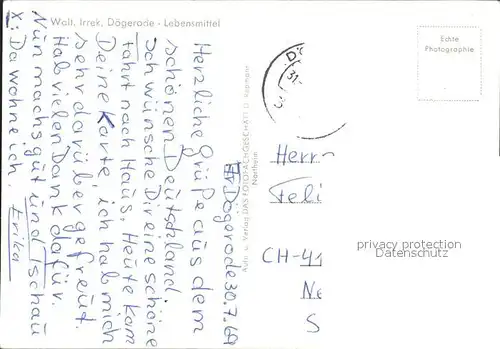 Walt. Irrek, Dögerode - Lebensmittel
Echte
Photographie
Dögerode 30.7.69
Herzliche Grüße aus dem
schönen Deutschland.
Ich wünsche Dir eine schöne
Fahrt nach Haus. Heute kam
Deine Karte, ich hab mich
sehr darüber gefreut.
Hab vielen Dank dafür.
Nun machs gut und Tschau
Erika
X: Da wohne ich.
Aufn. u. Verlag DAS FOTOFACHGESCHÄFT
Northeim
Herrn
Feli
CH-41
Ne
S
privacy protection
Datenschutz